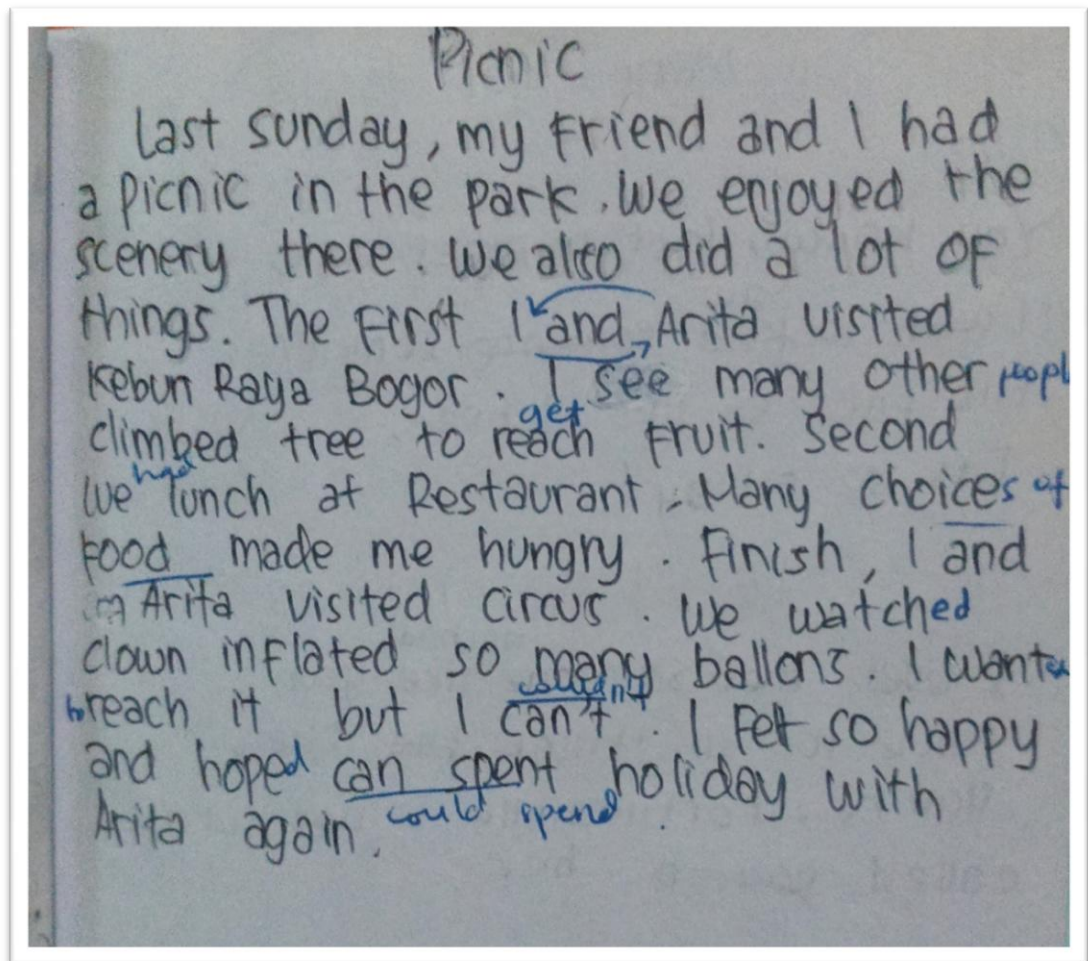 Picnic
Last sunday, my friend and I had
a picnic in the park. We enjoyed the
scenery there. We also did a lot of
things. The first I and Arita visited
Kebun Raya Bogor. I see many other peopl
get
climbed tree to reach fruit. Second
had
We lunch at Restaurant. Many choices of
food made me hungry. Finish, I and
Arita visited circus. We watched
clown inflated so many ballons. I wante
couldn't
to reach it but I can't. I felt so happy
and hoped can spent holiday with
could spend
Arita again.